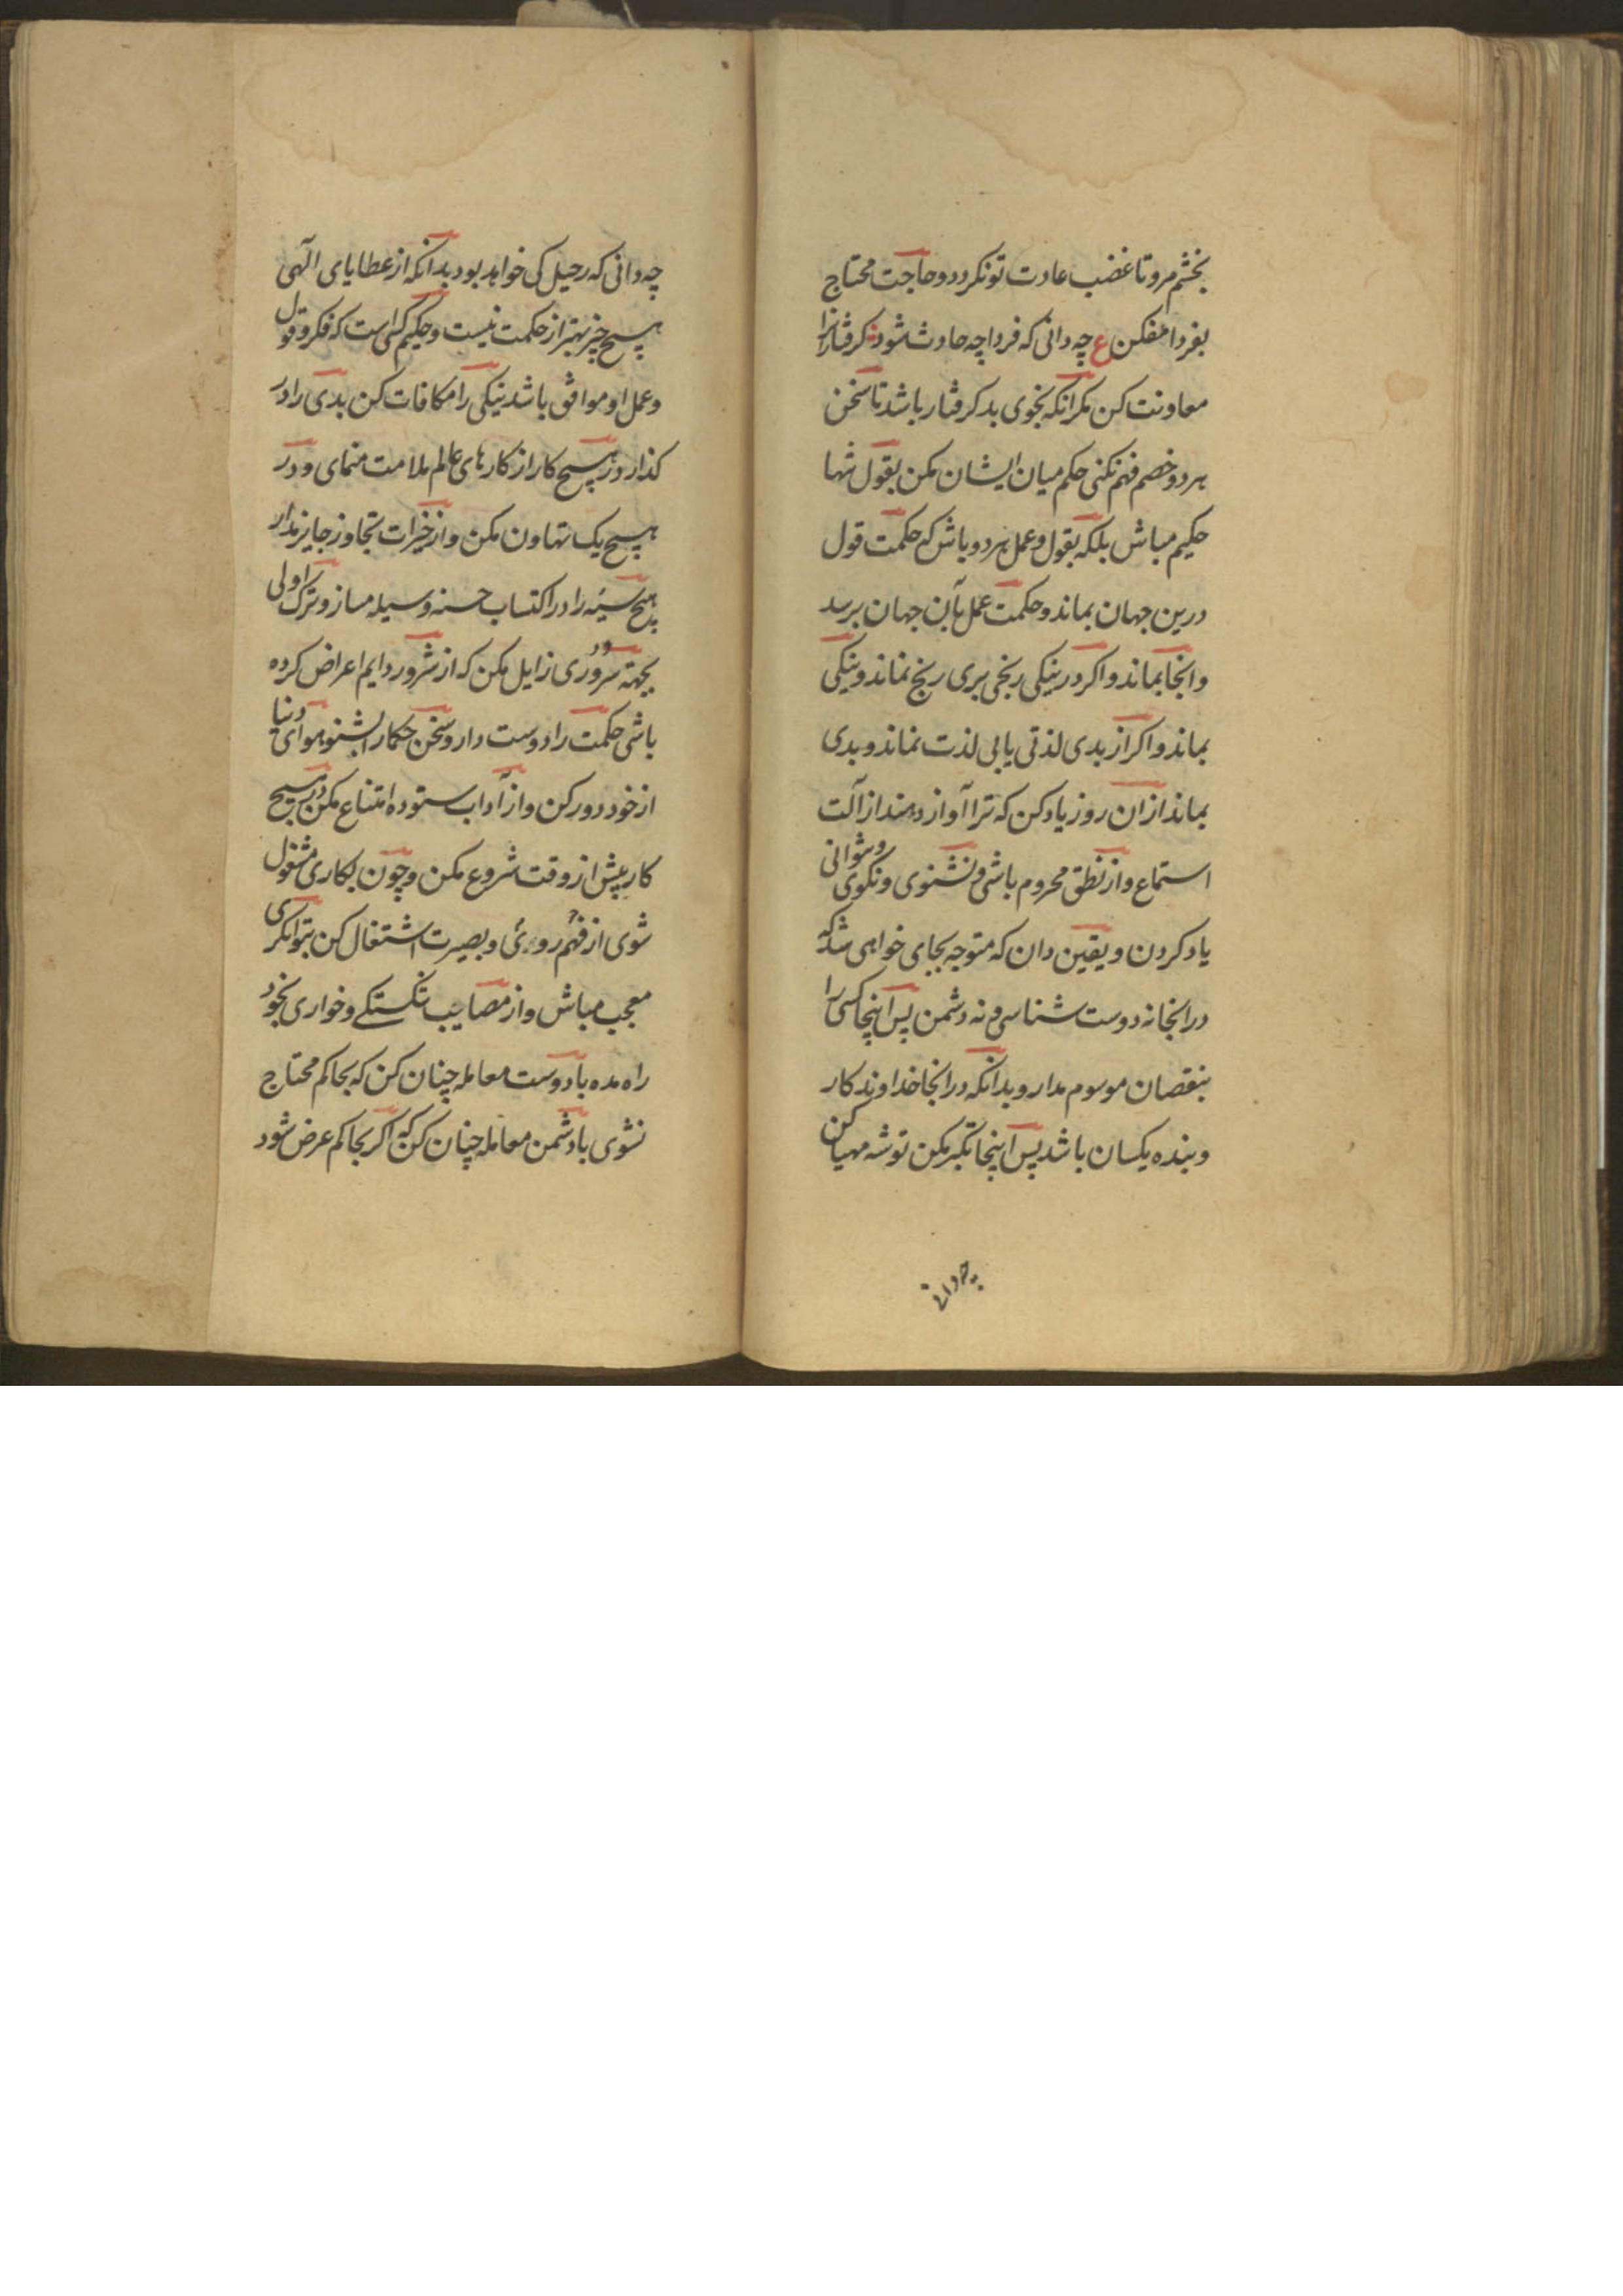 بخشم مرو تا غضب عادت تو نکردد و حاجت محتاج
بفردا مفکن ع چه دانی که فردا چه حادث شود کرفتارانرا
معاونت کن مکر آنکه بخوی بد کرفتار باشد تا سخن
هر دو خصم فهم نکنی حکم میان ایشان مکن بقول تنها
حکیم مباش بلکه بقول و عمل هر دو باش که حکمت قول
درین جهان بماند و حکمت عمل بآن جهان برسد
و انجا بماند و اکر در نیکی رنجی بری رنج نماند و نیکی
بماند و اکر از بدی لذتی یابی لذت نماند و بدی
بماند از ان روز یاد کن که ترا آواز دهند از آلت
استماع و از نطق محروم باشی و نشنوی و نکوی و نتوانی
یاد کردن و یقین دان که متوجه بجای خواهی شد که
در انجا نه دوست شناسی و نه دشمن پس اینجا کسی را
بنقصان موسوم مدار و بدانکه در انجا خداوندکار
و بنده یکسان باشد پس اینجا تکبر مکن توشه مهیا کن
چه دانی
چه دانی که رحیل کی خواهد بود بدانکه از عطایای الهی
هیچ چیز بهتر از حکمت نیست و حکیم کسی است که فکر و قول
و عمل او موافق باشد نیکی را مکافات کن بدی را در
کذار در هیچ کار از کارهای عالم ملامت منمای و در
هیچ یک تهاون مکن و از خیرات تجاوز جایز مدار
هیچ سیئه را در اکتساب حسنه وسیله مساز و ترک اولی
بجهة سروری زایل مکن که از سرور دایم اعراض کرده
باشی حکمت را دوست دار و سخن حکما را بشنو هوای دنیا
از خود دور کن و از آداب ستوده امتناع مکن در هیچ
کار پیش از وقت شروع مکن و چون بکاری مشغول
شوی از فهم و بصیرت اشتغال کن بتوانکری
معجب مباش و از مصایب شکستکی و خواری بخود
راه مده با دوست معامله چنان کن که بحاکم محتاج
نشوی با دشمن معامله چنان کن که اکر بحاکم عرض شود